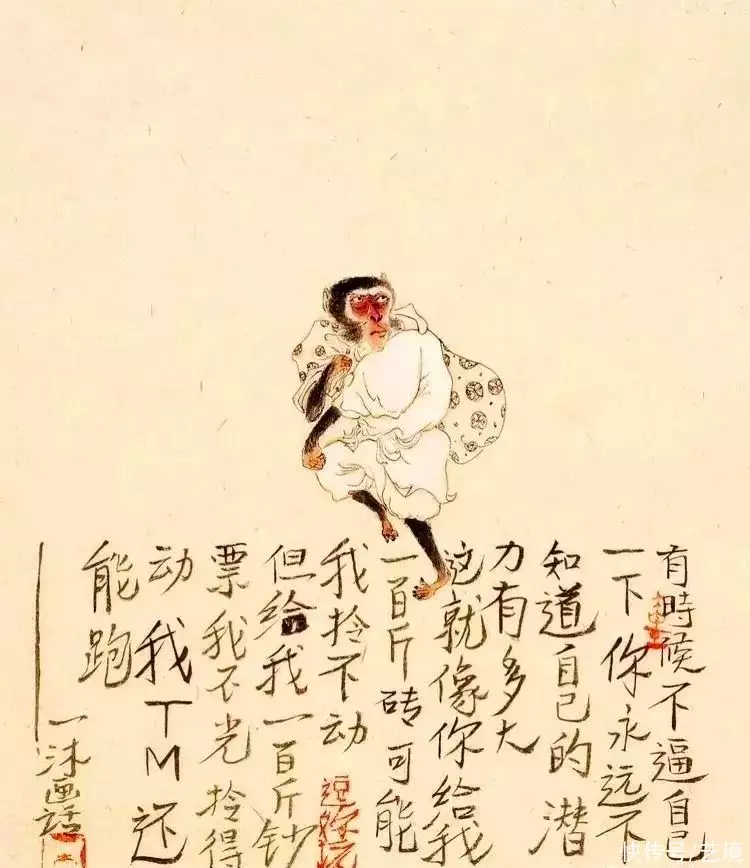 有時候不逼自己
一下你永远不
知道自己的潜
力有多大
这就像你给我
一百斤砖可能
我拎不动
但给我一百斤钞
票我不光拎得
动我TM还
能跑
一沐画话
快传号/艺境